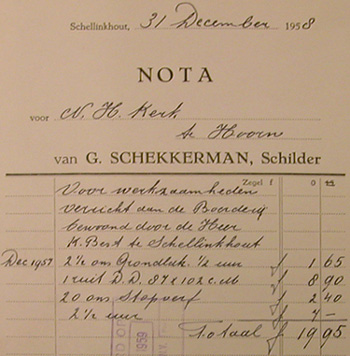 Schellinkhout, 31 December 1958
NOTA
voor N. H. Kerk
te Hoorn
van G. SCHEKKERMAN, Schilder
Zegel f 0
Voor werkzaamheden
verricht aan de Boerderij
bewoond door de Heer
K. Best te Schellinkhout
Dec 1957 2½ ons Grondlak. ½ uur f 1,65
1 ruit D.D. 87 x 102 c.M f 8,90
20 ons Stopverf f 2,40
2½ uur f 7 —
totaal f 19,95
1959